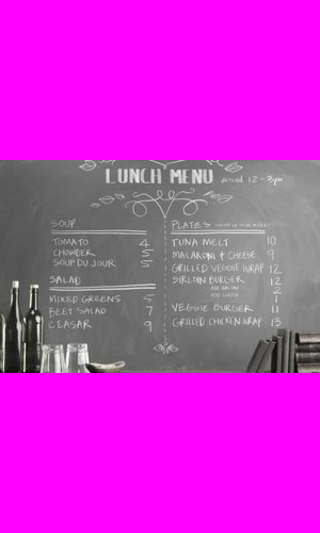 LUNCH MENU
served 12-3pm
SOUP
TOMATO 4
CHOWDER 5
SOUP DU JOUR 5
SALAD
MIXED GREENS 5
BEET SALAD 7
CEASAR 9
PLATES
TUNA MELT 10
MACARONI + CHEESE 9
GRILLED VEGGIE WRAP 12
SIRLOIN BURGER 12
ADD BACON 2
ADD CHEESE 1
VEGGIE BURGER 11
GRILLED CHICKEN WRAP 13